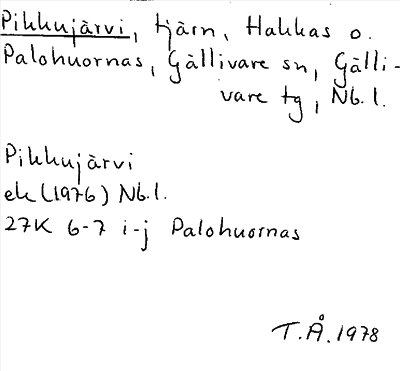 Pikkujärvi, tjärn, Hakkas o.
Palohuornas, Gällivare sn, Gälli-
vare tg, Nb.l.
Pikkujärvi
ek (1976) Nb.l.
27K 6-7 i-j Palohuornas
T.Å. 1978